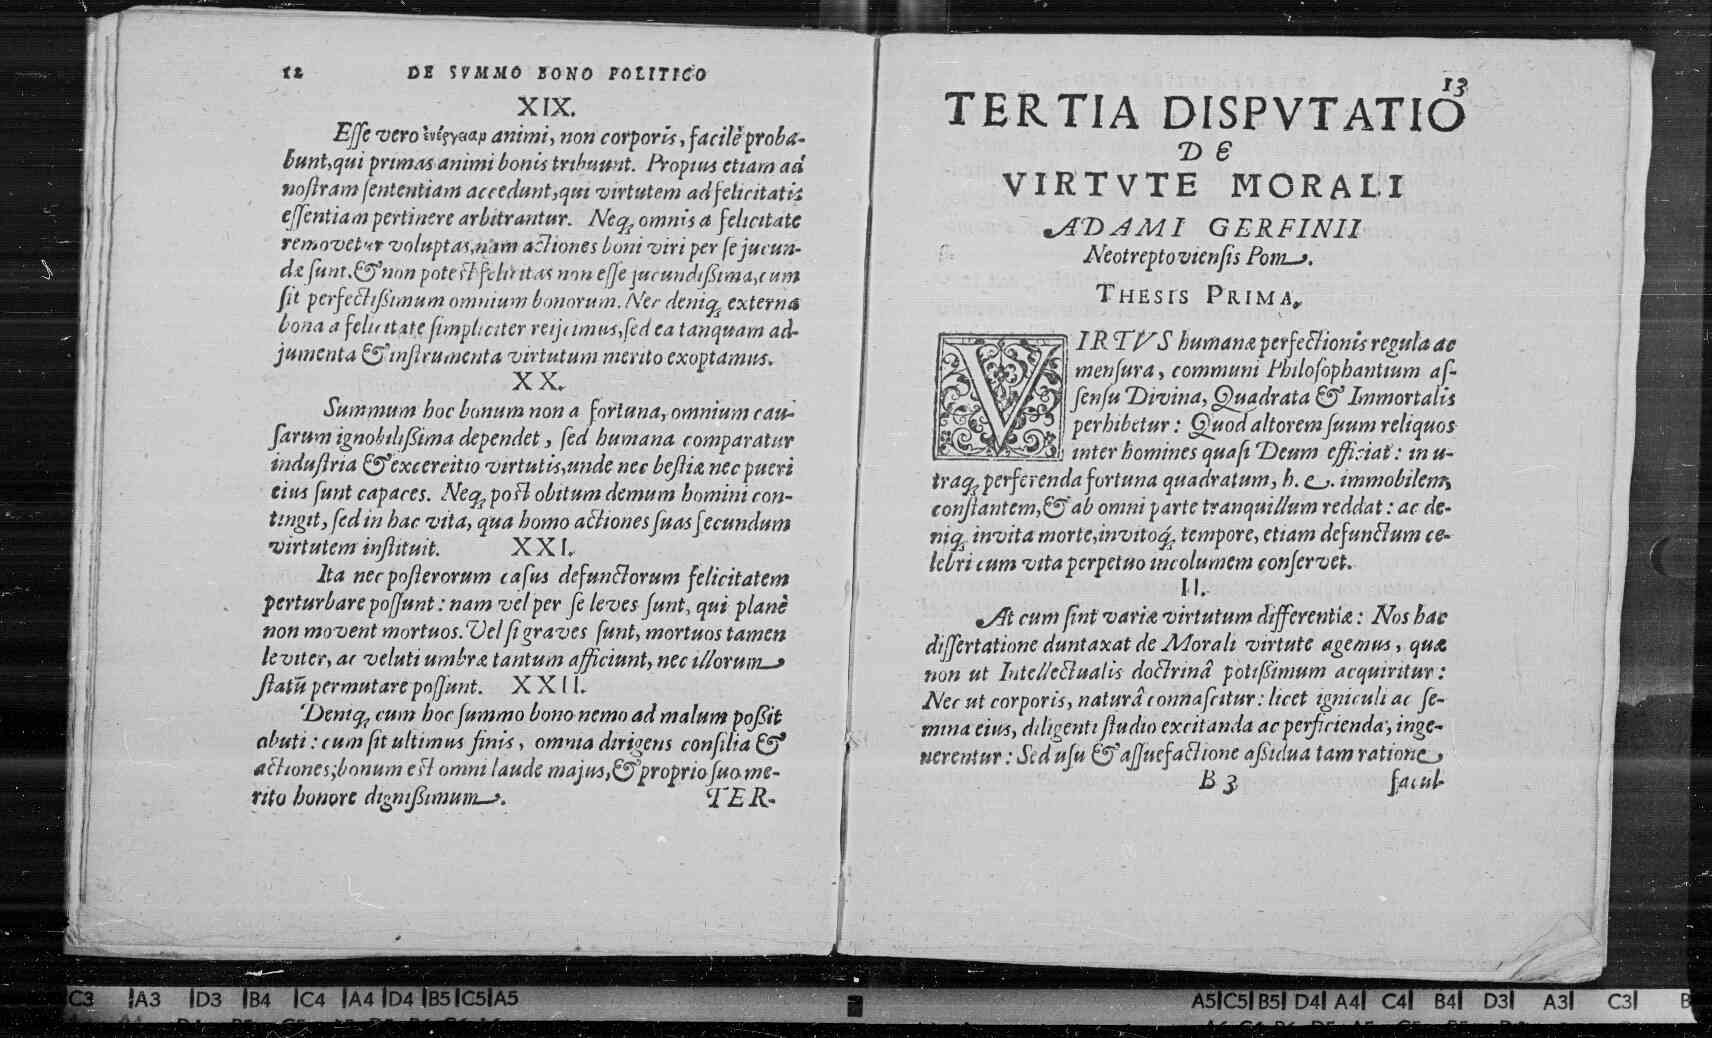 12 DE SVMMO BONO POLITICO
XIX.
Eſſe vero ἐνέργειαν animi, non corporis, facilè proba-
bunt, qui primas animi bonis tribuunt. Propius etiam ad
noſtram ſententiam accedunt, qui virtutem ad felicitatis
eſſentiam pertinere arbitrantur. Neq; omnis a felicitate
removetur voluptas, nam actiones boni viri per ſe jucun-
dæ ſunt, & non poteſt felicitas non eſſe jucundiſsima, cum
ſit perfectiſsimum omnium bonorum. Nec deniq; externa
bona a felicitate ſimpliciter reijcimus, ſed ea tanquam ad-
jumenta & inſtrumenta virtutum merito exoptamus.
XX.
Summum hoc bonum non a fortuna, omnium cau-
ſarum ignobiliſsima dependet, ſed humana comparatur
induſtria & excereitio virtutis, unde nec beſtiæ nec pueri
eius ſunt capaces. Neq; poſt obitum demum homini con-
tingit, ſed in hac vita, qua homo actiones ſuas ſecundum
virtutem inſtituit. XXI.
Ita nec poſterorum caſus defunctorum felicitatem
perturbare poſſunt: nam vel per ſe leves ſunt, qui planè
non movent mortuos. Vel ſi graves ſunt, mortuos tamen
leviter, ac veluti umbræ tantum afficiunt, nec illorum
ſtatū permutare poſſunt. XXII.
Deniq; cum hoc ſummo bono nemo ad malum poſsit
abuti: cum ſit ultimus finis, omnia dirigens conſilia &
actiones; bonum eſt omni laude majus, & proprio ſuo me-
rito honore digniſsimum.
TER-
13
TERTIA DISPVTATIO
DE
VIRTVTE MORALI
ADAMI GERFINII
Neotreptovienſis Pom.
THESIS PRIMA.
VIRTVS humanæ perfectionis regula ac
menſura, communi Philoſophantium aſ-
ſenſu Divina, Quadrata & Immortalis
perhibetur: Quod altorem ſuum reliquos
inter homines quaſi Deum efficiat: in u-
traq; perferenda fortuna quadratum, h. e. immobilem,
conſtantem, & ab omni parte tranquillum reddat: ac de-
niq; invita morte, invitoq́; tempore, etiam defunctum ce-
lebri cum vita perpetuo incolumem conſervet.
II.
At cum ſint variæ virtutum differentiæ: Nos hac
diſſertatione duntaxat de Morali virtute agemus, quæ
non ut Intellectualis doctrinâ potiſsimum acquiritur:
Nec ut corporis, naturâ connaſcitur: licet igniculi ac ſe-
mina eius, diligenti ſtudio excitanda ac perficienda, inge-
nerentur: Sed uſu & aſſuefactione aſsidua tam ratione
B 3 facul-
C3 A3 D3 B4 C4 A4 D4 B5 C5 A5
A5 C5 B5 D4 A4 C4 B4 D3 A3 C3 B